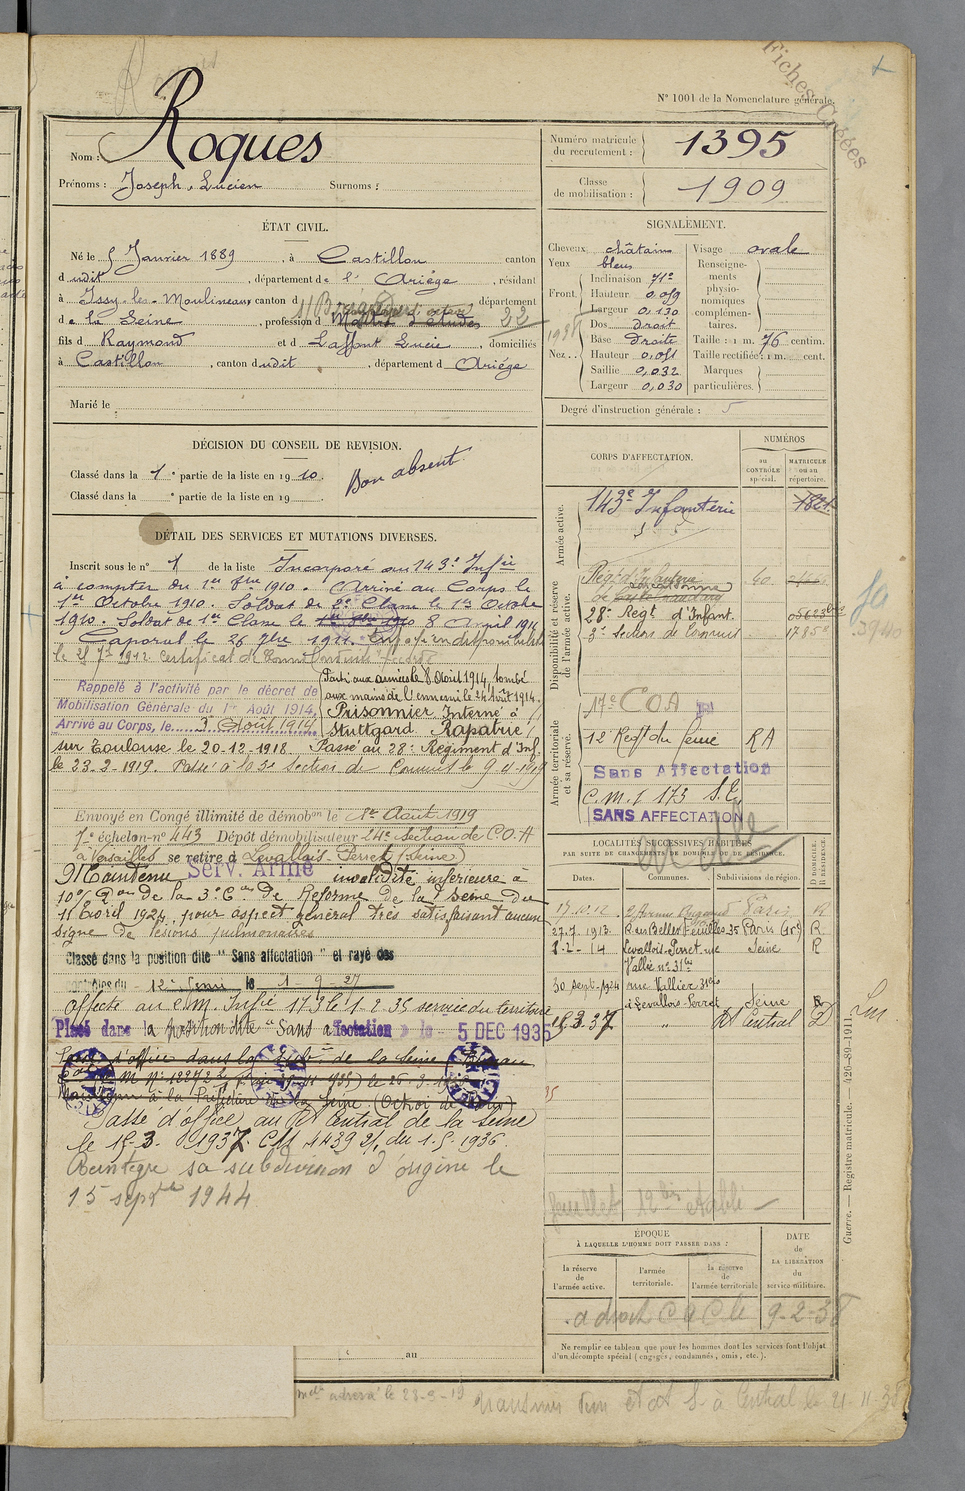 Fiches Créées
N° 1001 de la Nomenclature générale.
Nom : Roques
Prénoms : Joseph, Lucien Surnoms :
Numéro matricule du recrutement : 1395
Classe de mobilisation : 1909
ÉTAT CIVIL.
Né le 5 Janvier 1889, à Castillon canton
dudit, département de l'Ariège, résidant
à Issy-les-Moulineaux canton d département
de la Seine, profession d Maître d'études 22
fils d Raymond et d Laffont Lucie, domiciliés
à Castillon, canton dudit, département d Ariège
Marié le
SIGNALEMENT.
Cheveux châtains
Yeux bleus
Front. Inclinaison 71°
Hauteur 0,059
Largeur 0,130
Nez Dos droit
Base droite
Hauteur 0,051
Saillie 0,032
Largeur 0,030
Visage ovale
Renseignements physionomiques complémentaires.
Taille : 1 m. 76 centim.
Taille rectifiée : 1 m. cent.
Marques particulières.
Degré d'instruction générale : 5
DÉCISION DU CONSEIL DE REVISION.
Classé dans la 1e partie de la liste en 1910. Bon absent
Classé dans la e partie de la liste en 19
DÉTAIL DES SERVICES ET MUTATIONS DIVERSES.
Inscrit sous le n° 1 de la liste Incorporé au 143e Infie
à compter du 1er 8bre 1910. Arrivé au Corps le
1er Octobre 1910. Soldat de 2e Classe le 1er Octobre
1910. Soldat de 1re Classe le 1er 8bre 1910 8 Avril 1911
Caporal le 26 7bre 1911. Envoyé en disponibilité
le 25 7bre 1912. Certificat de Bonne Conduite Accordé
Rappelé à l'activité par le décret de
Mobilisation Générale du 1er Août 1914,
Arrivé au Corps, le 3 Août 1914
Parti aux armées le 8 Août 1914, tombé
aux mains de l'ennemi le 24 Août 1914.
Prisonnier Interné à
Stuttgard Rapatrié
sur Toulouse le 20-12-1918. Passé au 28e Régiment d'Inf.
le 23-2-1919. Passé à la 3e Section de Commis le 9-4-1919
Envoyé en Congé illimité de démobon le 1er Août 1919
7e échelon n° 443 Dépôt démobilisateur 24e section de C.O.A
à Versailles se retire à Levallois-Perret (Seine)
Maintenu Serv. Armé invalidité inférieure à
10% Don de la 3e Con de Réforme de la Seine du
11 Avril 1924, pour aspect général très satisfaisant aucun
signe de lésions pulmonaires
Classé dans la position dite "Sans affectation" et rayé des
contrôles du 12e Génie le 1-9-27
Affecté au C.M. Infie 173 le 1.2.35 service du territoire
Placé dans la position dite "Sans affectation" le 5 DEC 1935
Passé d'office au Rt Central de la Seine
le 15-3.1937. CM 4439 21, du 1.5.1936
Réintègre sa subdivision d'origine le
15 septbre 1944
au
CORPS D'AFFECTATION.
NUMÉROS
au CONTRÔLE spécial.
MATRICULE ou au répertoire.
Armée active.
143e Infanterie 1821
Disponibilité et réserve de l'armée active.
28e Regt d'Infant.
3e Section de Commis 17858
Armée territoriale et sa réserve.
17e COA
12 Regt du Génie RA
Sans Affectation
C.M.I 173 S.E.
SANS AFFECTATION
LOCALITÉS SUCCESSIVES HABITÉES
PAR SUITE DE CHANGEMENT DE DOMICILE OU DE RÉSIDENCE.
Dates. Communes. Subdivisions de région. D DOMICILE. R RÉSIDENCE.
17.10.12 Paris R
27.7.1913 R. des Belles Feuilles 35 Paris R
1-2-14 Levallois-Perret rue Vallier n° 31bis Seine R
30 Sept. 1924 rue Vallier 31bis à Levallois-Perret Seine
15.3.37 " Rt Central D
feuillet 12bis établi
ÉPOQUE
À LAQUELLE L'HOMME DOIT PASSER DANS :
la réserve de l'armée active.
l'armée territoriale.
la réserve de l'armée territoriale
DATE de LA LIBÉRATION du service militaire.
9-2-38
Ne remplir ce tableau que pour les hommes dont les services font l'objet
d'un décompte spécial (engagés, condamnés, omis, etc.).
Guerre. — Registre matricule. — 426-89-1911.
adressé le 23-9-19